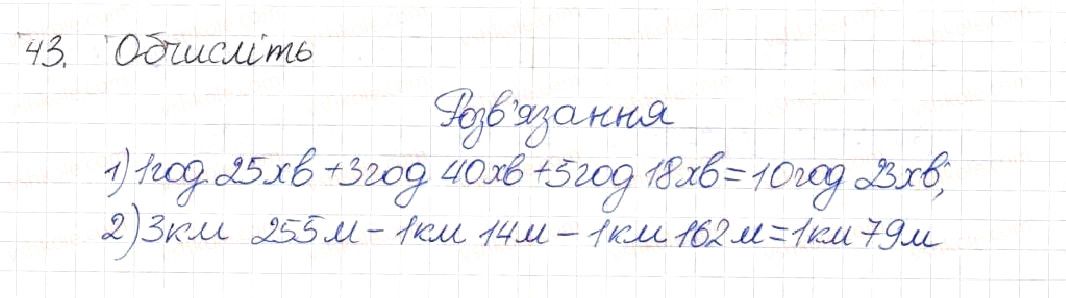 43. Обчисліть
Розв'язання
1) 1год 25хв + 3год 40хв + 5год 18хв = 10год 23хв;
2) 3км 255м - 1км 14м - 1км 162м = 1км 79м